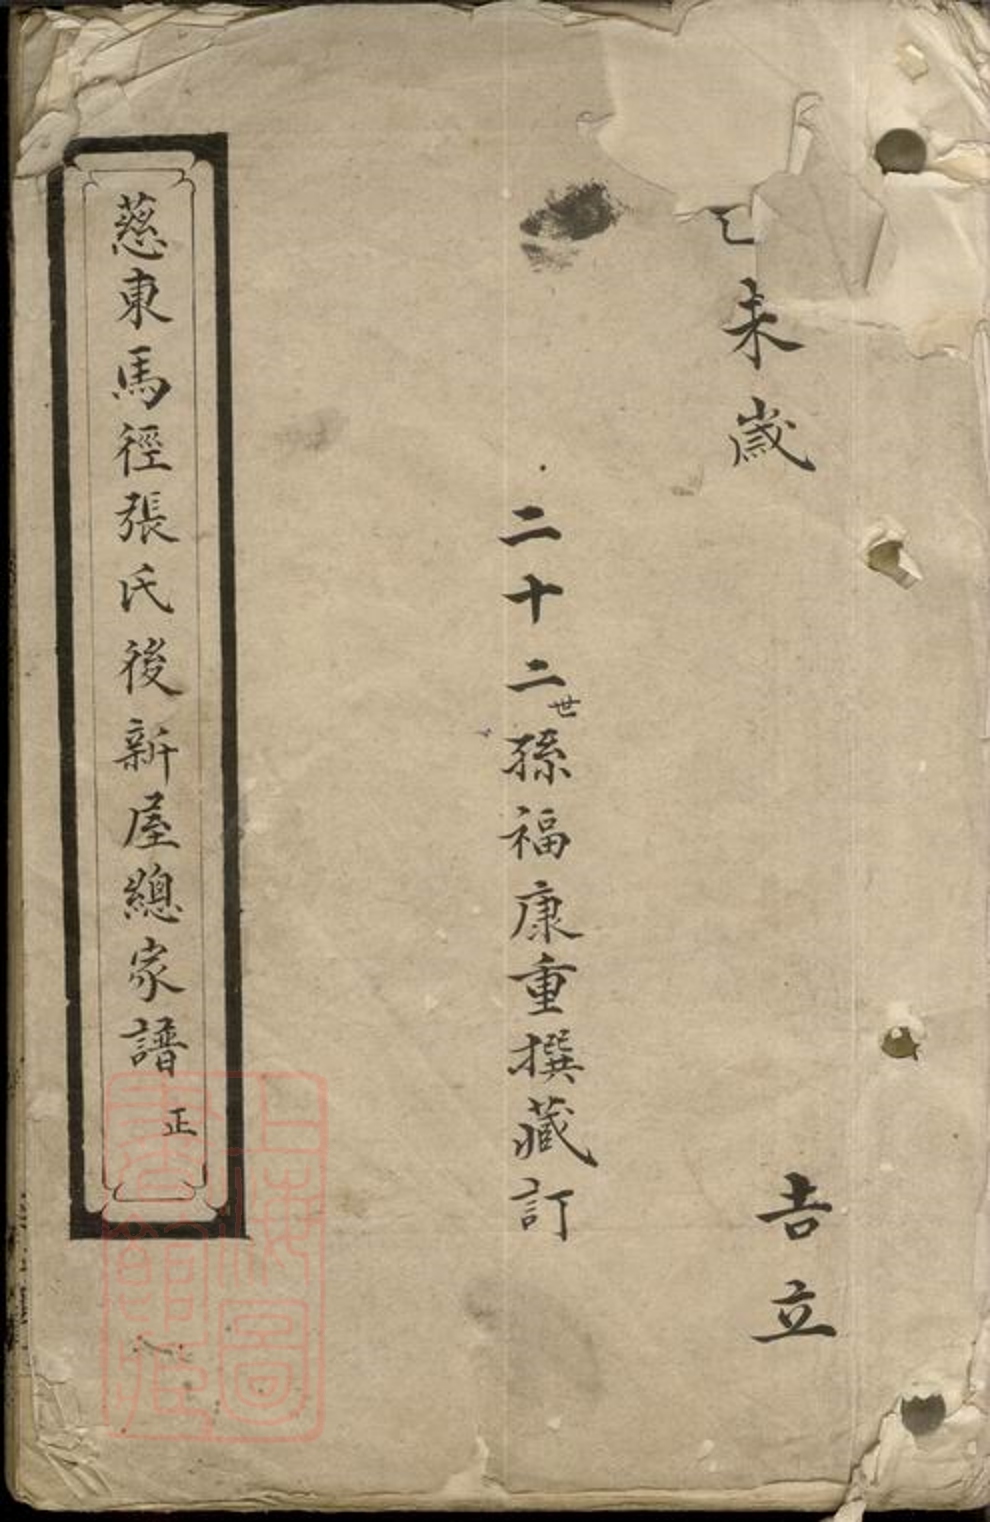 乙未歲
吉立
二十二世孫福康重撰藏訂
慈東馬徑張氏後新屋總家譜 正
上海圖書館藏